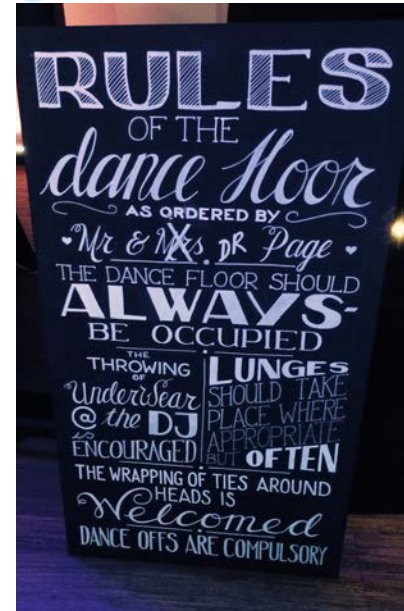 RULES
OF THE
dance floor
AS ORDERED BY
Mr & Mrs DR Page
THE DANCE FLOOR SHOULD
ALWAYS-
BE OCCUPIED
THE
THROWING
OF
Underwear
@ the DJ
is
ENCOURAGED
LUNGES
SHOULD TAKE
PLACE WHERE
APPROPRIATE
BUT OFTEN
THE WRAPPING OF TIES AROUND
HEADS IS
Welcomed
DANCE OFFS ARE COMPULSORY